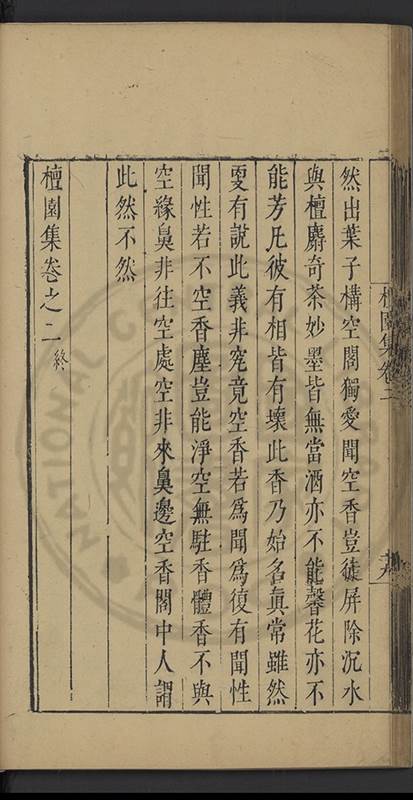 然出葉子構空閣獨愛聞空香豈徒屏除沉水
與檀麝奇茶妙墨皆無當酒亦不能馨花亦不
能芳凡彼有相皆有壞此香乃始名真常雖然
更有說此義非究竟空香若爲聞爲復有聞性
聞性若不空香塵豈能淨空無駐香體香不與
空緣臭非往空處空非來臭邊空香閣中人謂
此然不然
檀園集卷之二終